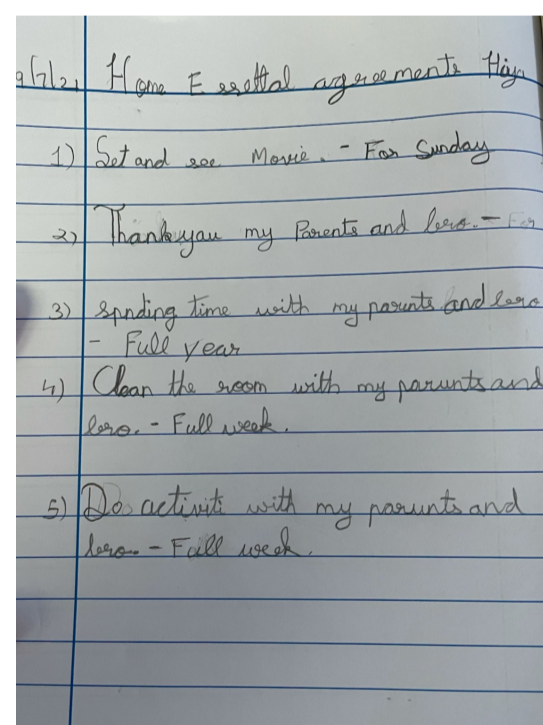 9/7/21 Home Essettal agreements
1) Set and see Movie. - For Sunday
2) Thankyou my Parents and bero. - For
3) spnding time with my parunts and bero
- Full year
4) Clean the room with my parunts and
bero. - Full week.
5) Do activiti with my parunts and
bero. - Full week.